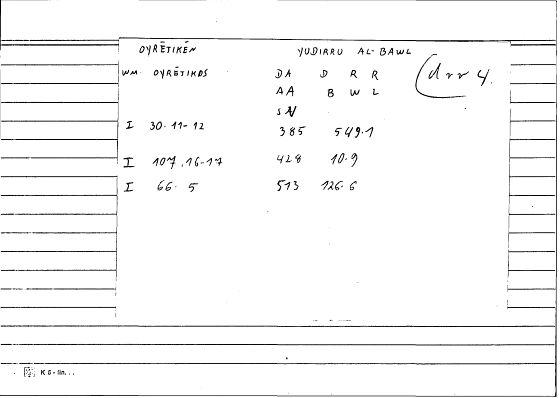 OYRĒTIKĒN YUDIRRU AL-BAWL
WM. OYRĒTIKOS DA D R R (drr 4.
AA B W L
S N
I 30.11-12 385 549.1
I 107.16-17 428 10.9
I 66.5 513 126.6
K 6 - lin...